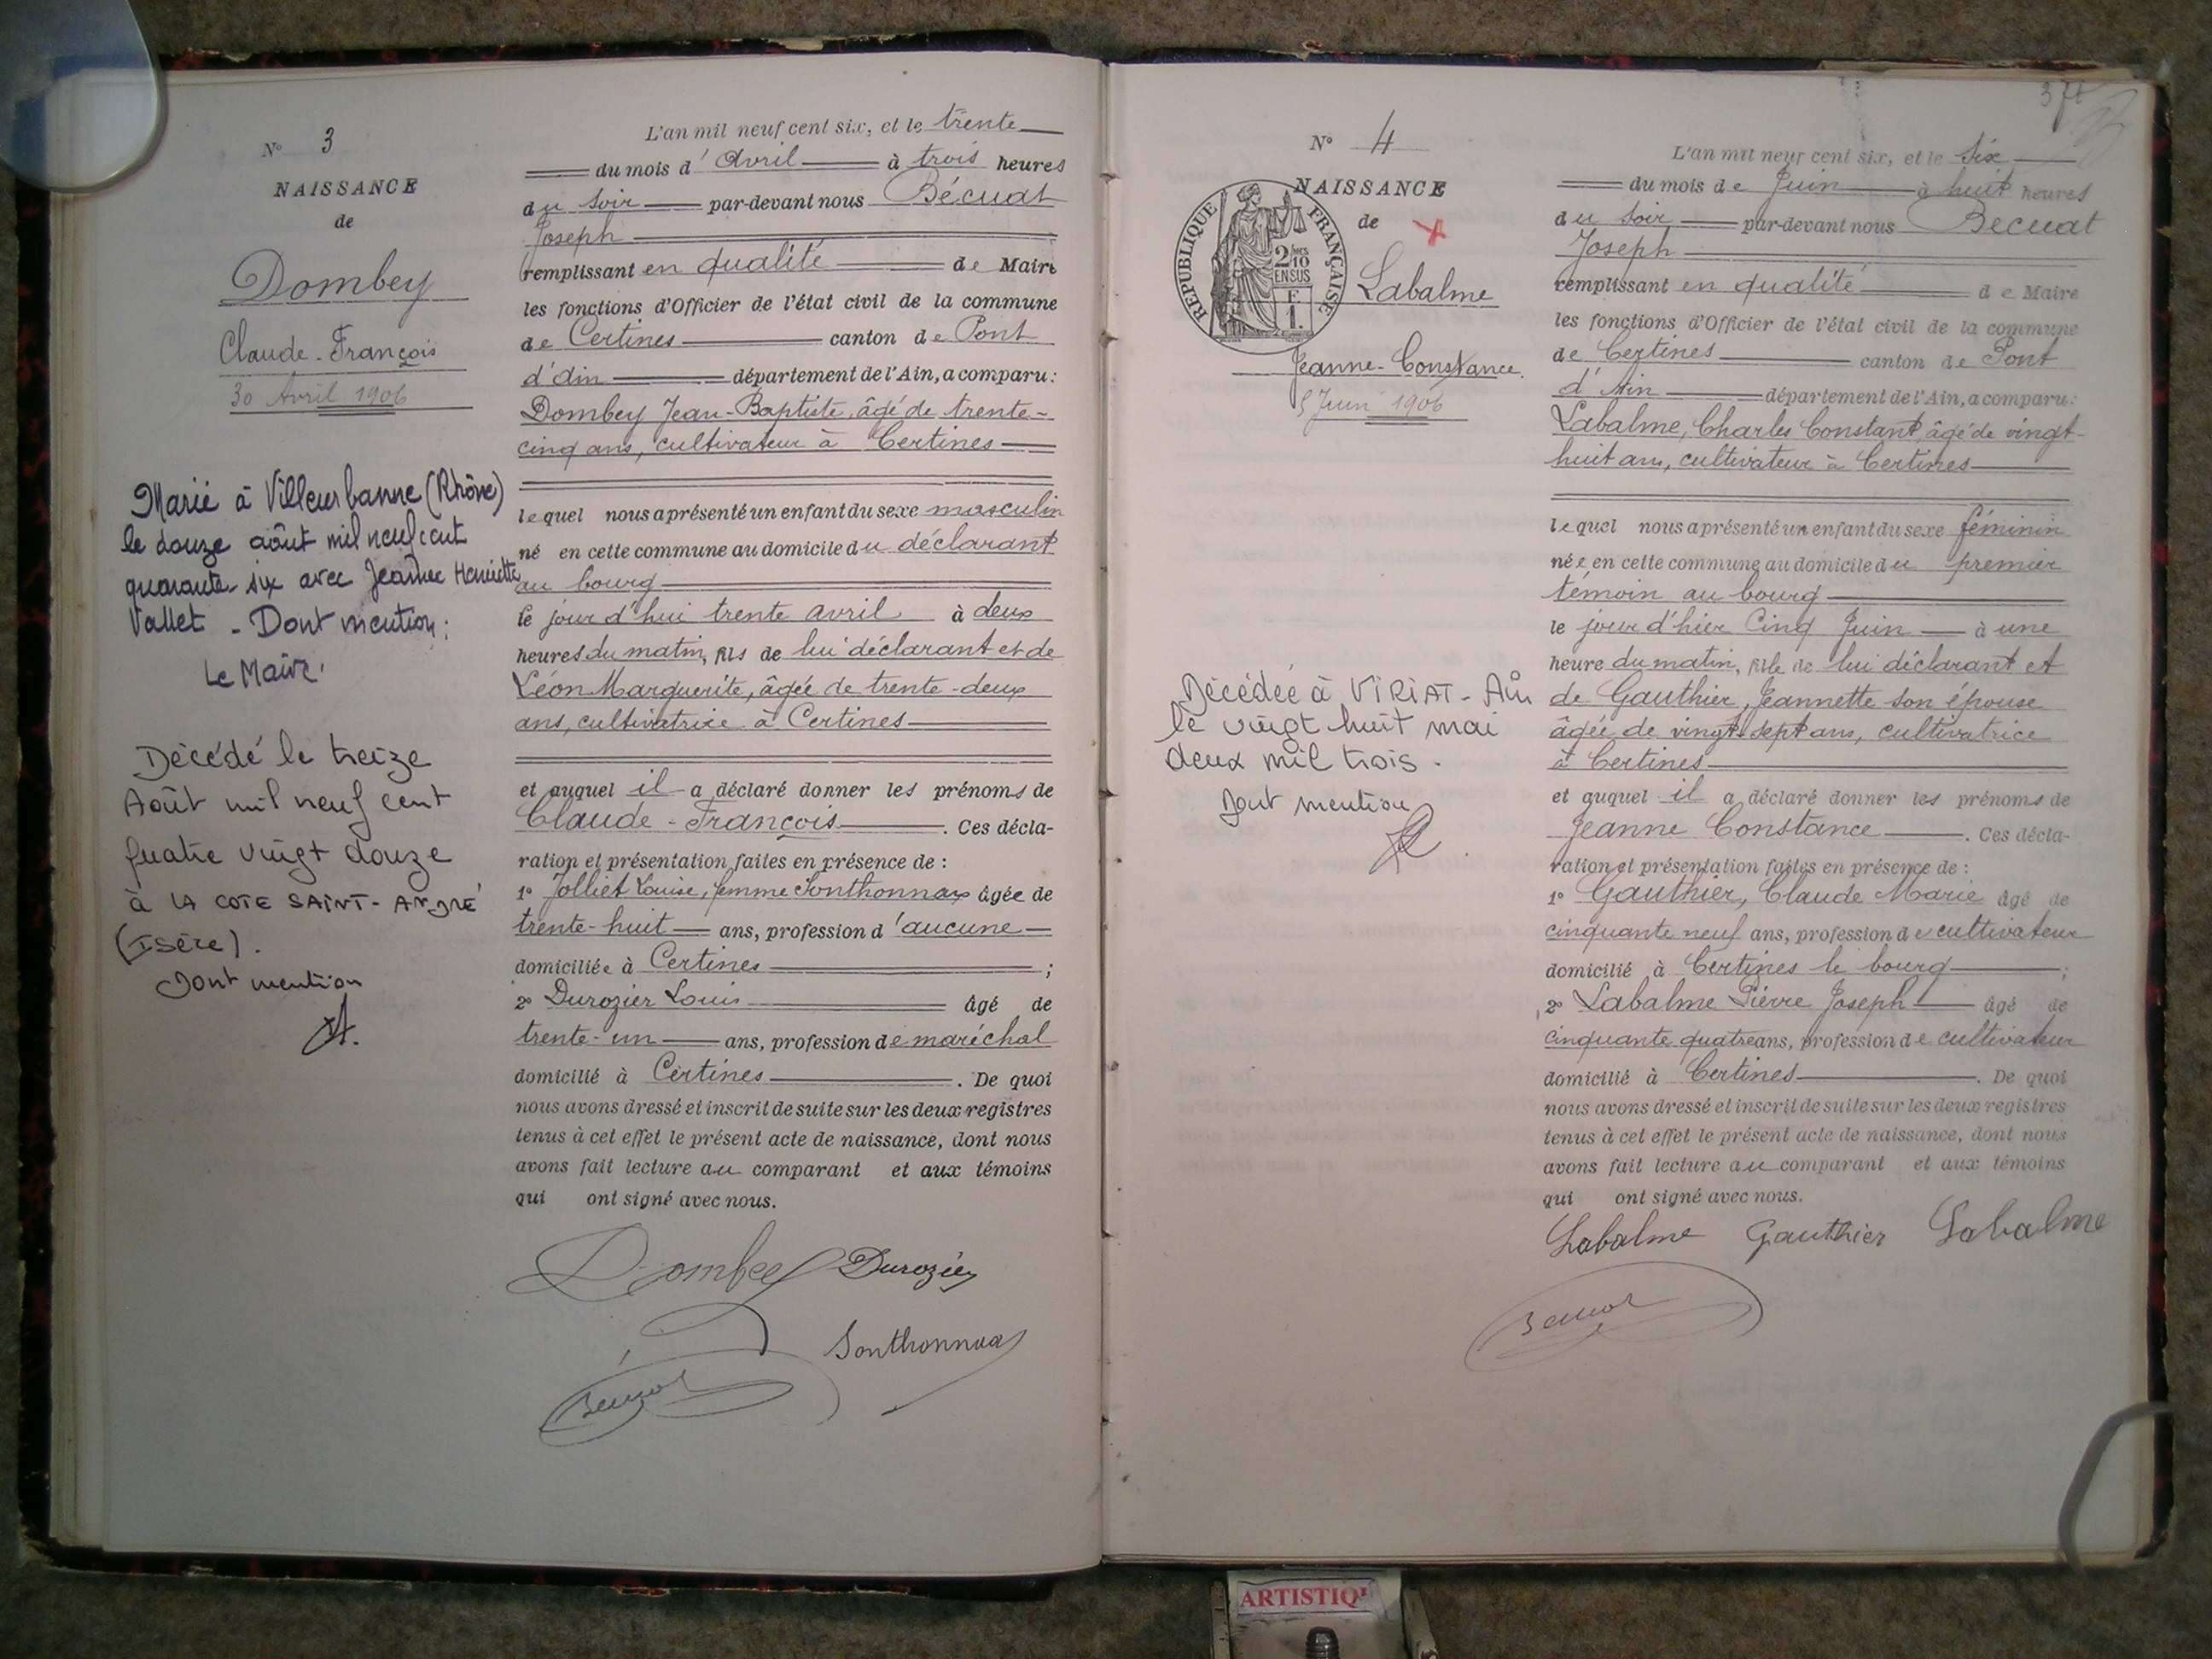 N° 3
NAISSANCE
de
Dombey
Claude-François
30 Avril 1906
Marié à Villeurbanne (Rhône)
le douze août mil neuf cent
quarante-six avec Jeanne Henriette
Vallet - Dont mention:
Le Maire.
Décédé le treize
Août mil neuf cent
quatre vingt douze
à LA COTE SAINT-ANDRÉ
(Isère).
Dont mention
L'an mil neuf cent six, et le trente
du mois d'Avril à trois heures
du soir par-devant nous Bécuat
Joseph
remplissant en qualité de Maire
les fonctions d'Officier de l'état civil de la commune
de Certines canton de Pont
d'Ain département de l'Ain, a comparu:
Dombey Jean-Baptiste, âgé de trente-
cinq ans, cultivateur à Certines
lequel nous a présenté un enfant du sexe masculin
né en cette commune au domicile du déclarant
au bourg
le jour d'hui trente avril à deux
heures du matin, fils de lui déclarant et de
Léon Marguerite, âgée de trente-deux
ans, cultivatrice à Certines
et auquel il a déclaré donner les prénoms de
Claude-François. Ces décla-
ration et présentation faites en présence de :
1° Jolliet Louise, femme Sonthonnax âgée de
trente-huit ans, profession d'aucune
domiciliée à Certines ;
2° Durozier Louis âgé de
trente-un ans, profession de maréchal
domicilié à Certines. De quoi
nous avons dressé et inscrit de suite sur les deux registres
tenus à cet effet le présent acte de naissance, dont nous
avons fait lecture au comparant et aux témoins
qui ont signé avec nous.
Dombey Durozier
Sonthonnax
Bécuat
N° 4
NAISSANCE
de
REPUBLIQUE FRANÇAISE
2/10
EN SUS
F
1.
Labalme
Jeanne-Constance.
5 Juin 1906
Décédée à VIRIAT - Ain
le vingt huit mai
deux mil trois.
Dont mention
L'an mil neuf cent six, et le six
du mois de Juin à huit heures
du soir par-devant nous Bécuat
Joseph
remplissant en qualité de Maire
les fonctions d'Officier de l'état civil de la commune
de Certines canton de Pont
d'Ain département de l'Ain, a comparu:
Labalme, Charles Constant, âgé de vingt-
huit ans, cultivateur à Certines
lequel nous a présenté un enfant du sexe féminin
née en cette commune au domicile du premier
témoin au bourg
le jour d'hier Cinq Juin à une
heure du matin, fille de lui déclarant et
de Gauthier, Jeannette son épouse
âgée de vingt-sept ans, cultivatrice
à Certines
et auquel il a déclaré donner les prénoms de
Jeanne Constance. Ces décla-
ration et présentation faites en présence de :
1° Gauthier, Claude Marie âgé de
cinquante neuf ans, profession de cultivateur
domicilié à Certines le bourg ;
2° Labalme Pierre Joseph âgé de
cinquante quatre ans, profession de cultivateur
domicilié à Certines. De quoi
nous avons dressé et inscrit de suite sur les deux registres
tenus à cet effet le présent acte de naissance, dont nous
avons fait lecture au comparant et aux témoins
qui ont signé avec nous.
Labalme Gauthier Labalme
Bécuat
ARTISTIQ